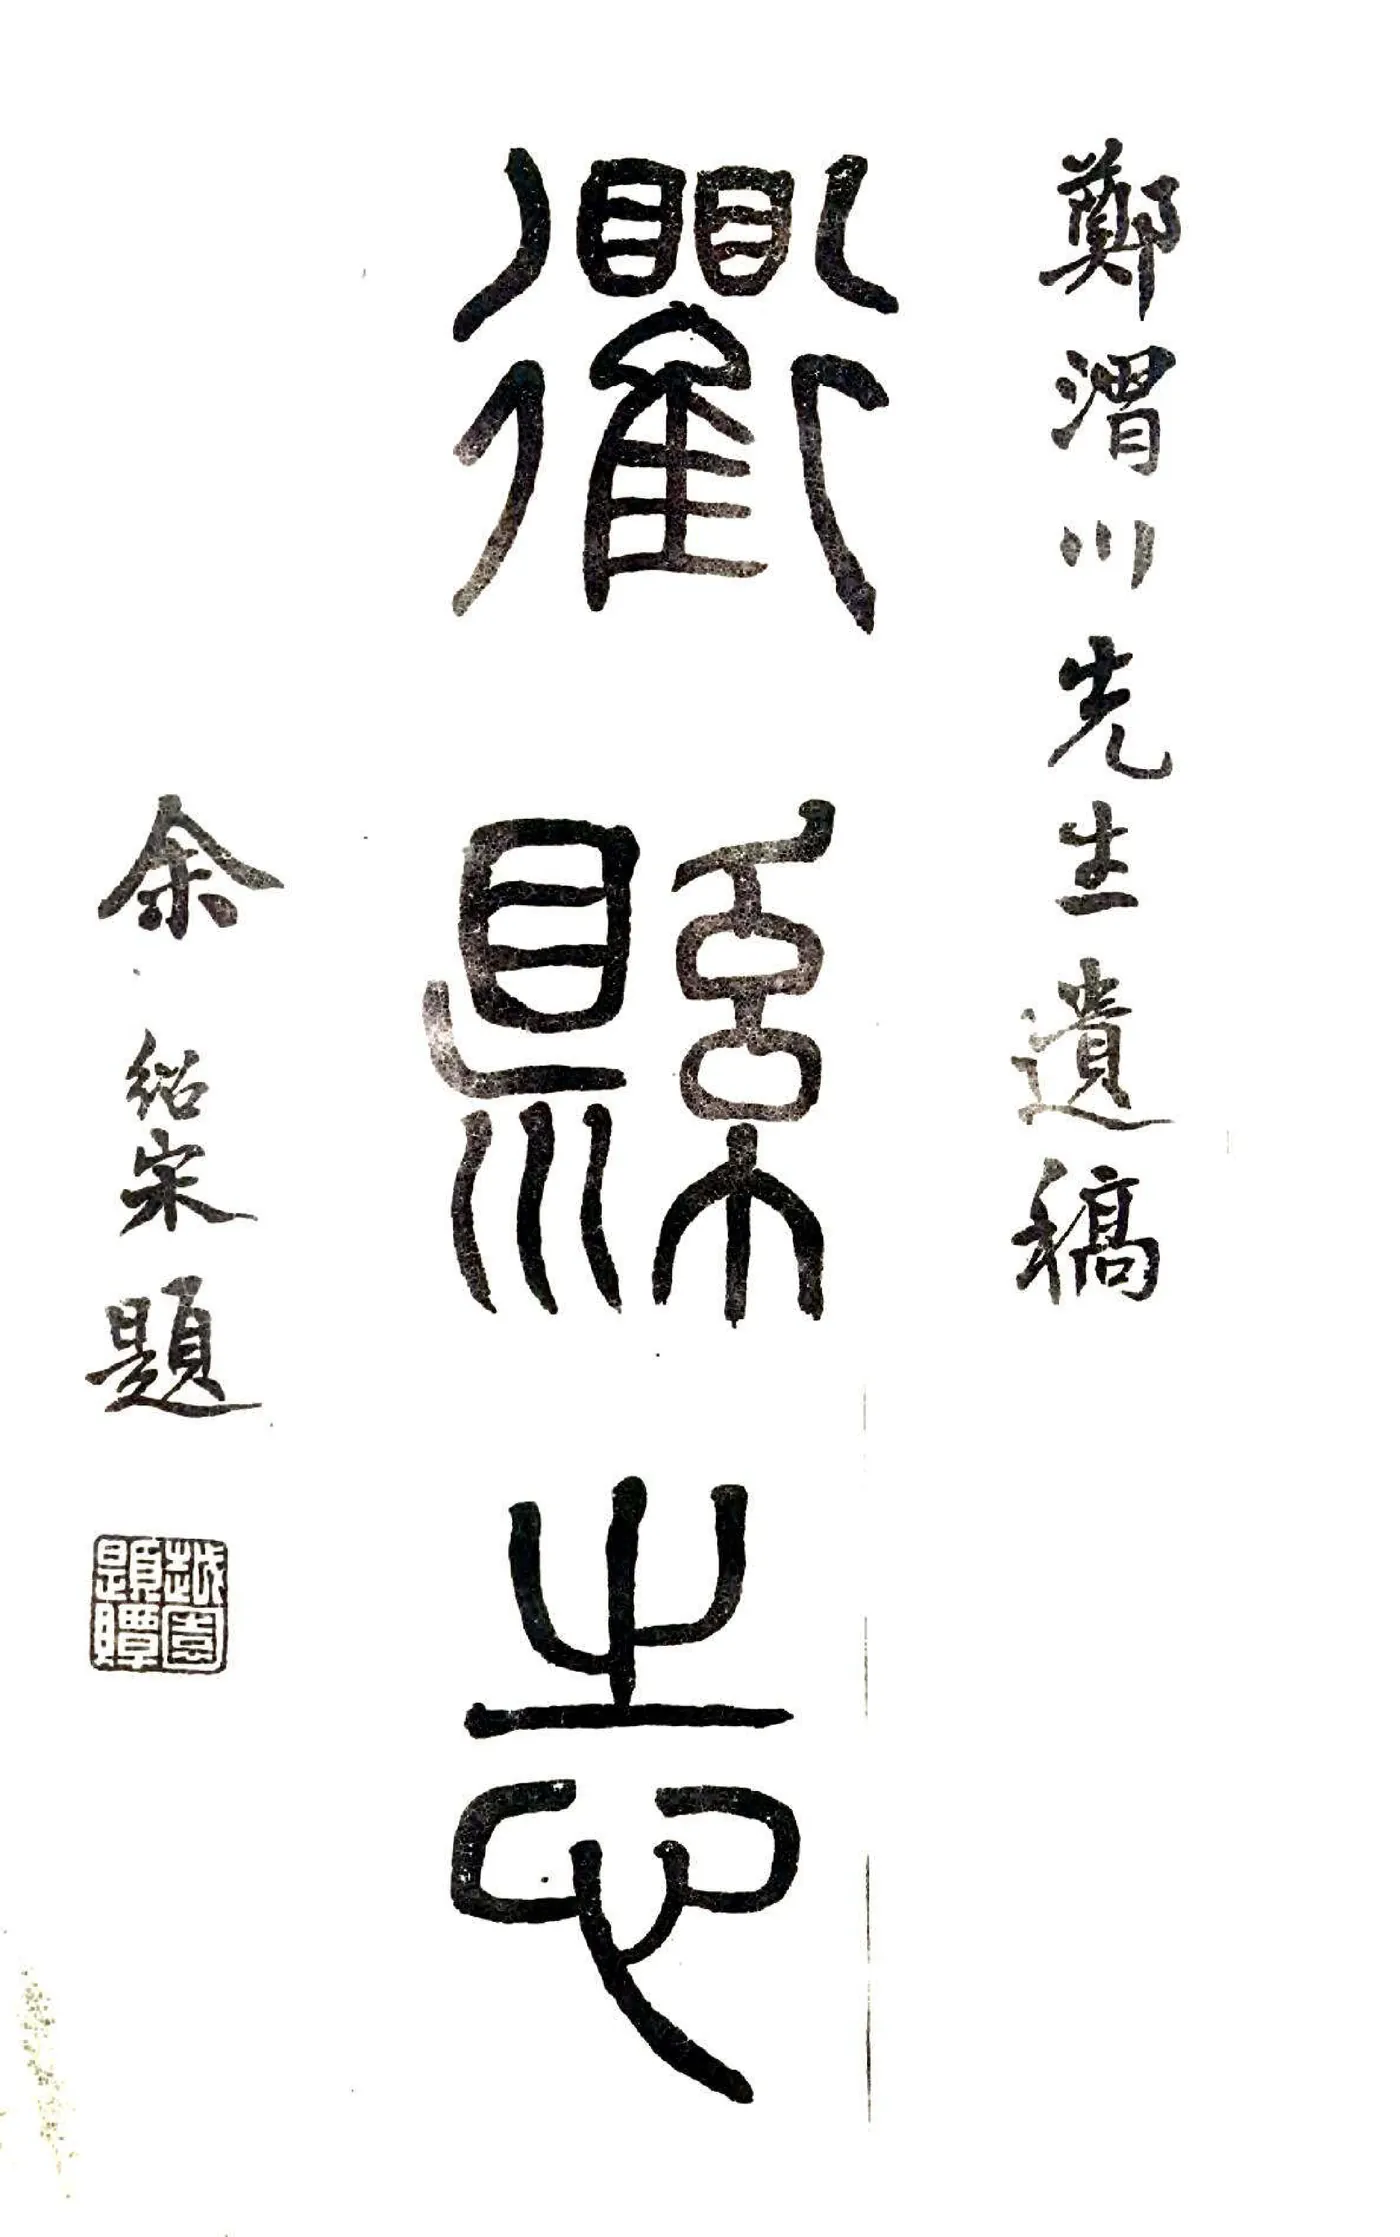 鄭渭川先生遺稿
衢縣志
余紹宋題
越園
題贉